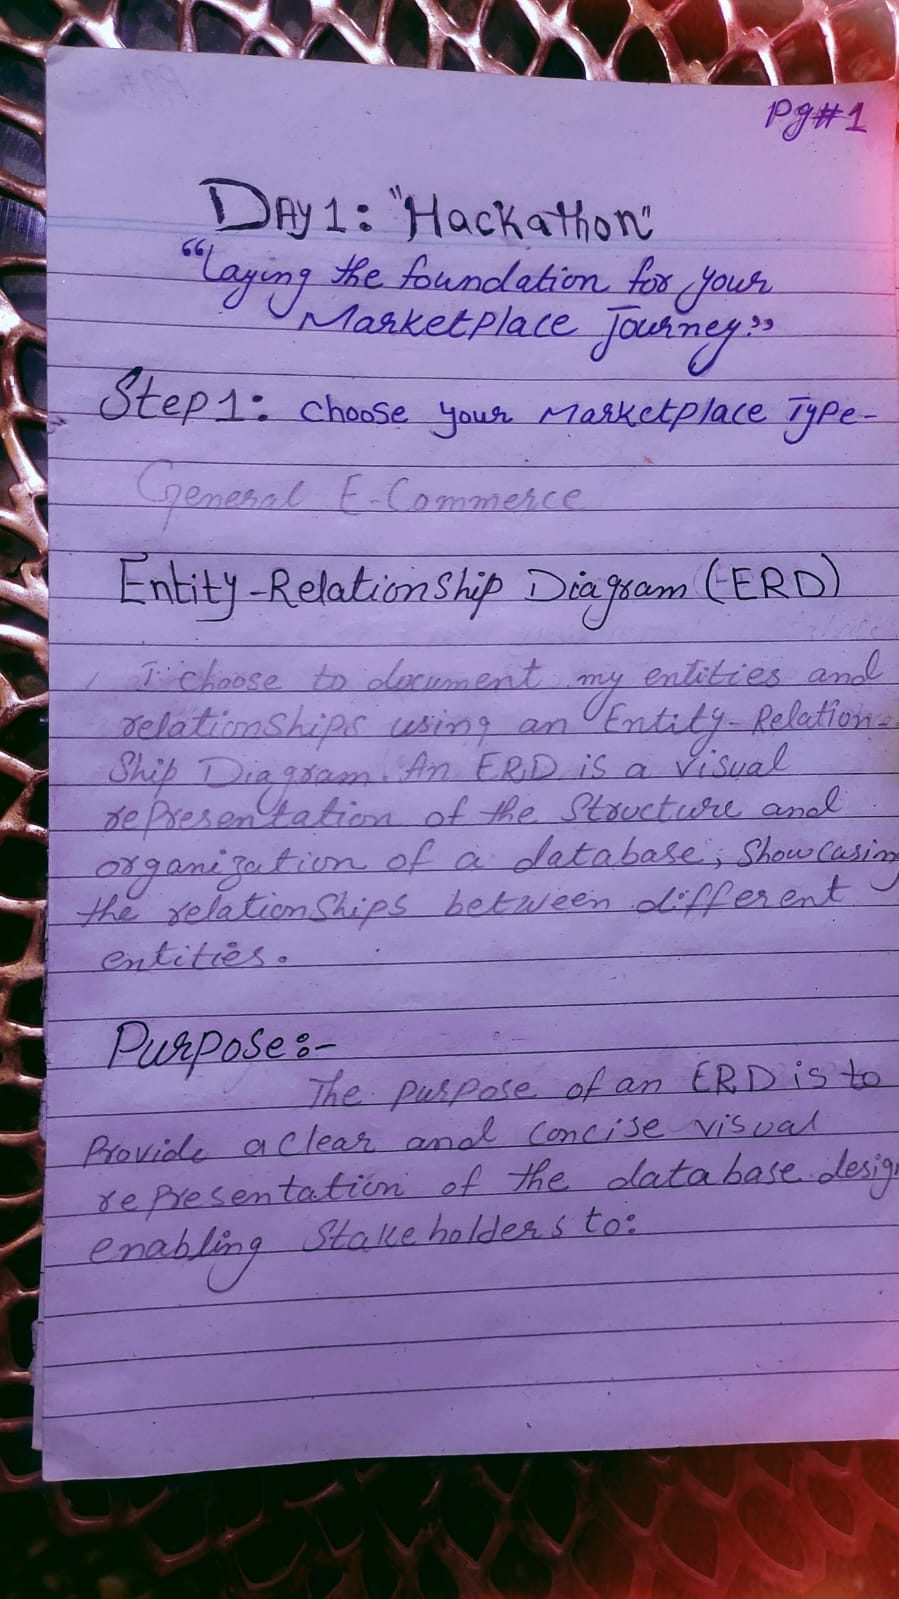 Pg#1
Day 1: "Hackathon"
“Laying the foundation for your
Marketplace Journey.”
Step 1: Choose your Marketplace Type-
General E-Commerce
Entity-Relationship Diagram (ERD)
I choose to document my entities and
relationships using an Entity-Relation-
Ship Diagram. An ERD is a visual
representation of the Structure and
organization of a database, Showcasing
the relationships between different
entities.
Purpose:-
The purpose of an ERD is to
Provide a Clear and Concise visual
representation of the database desig
enabling Stakeholders to: